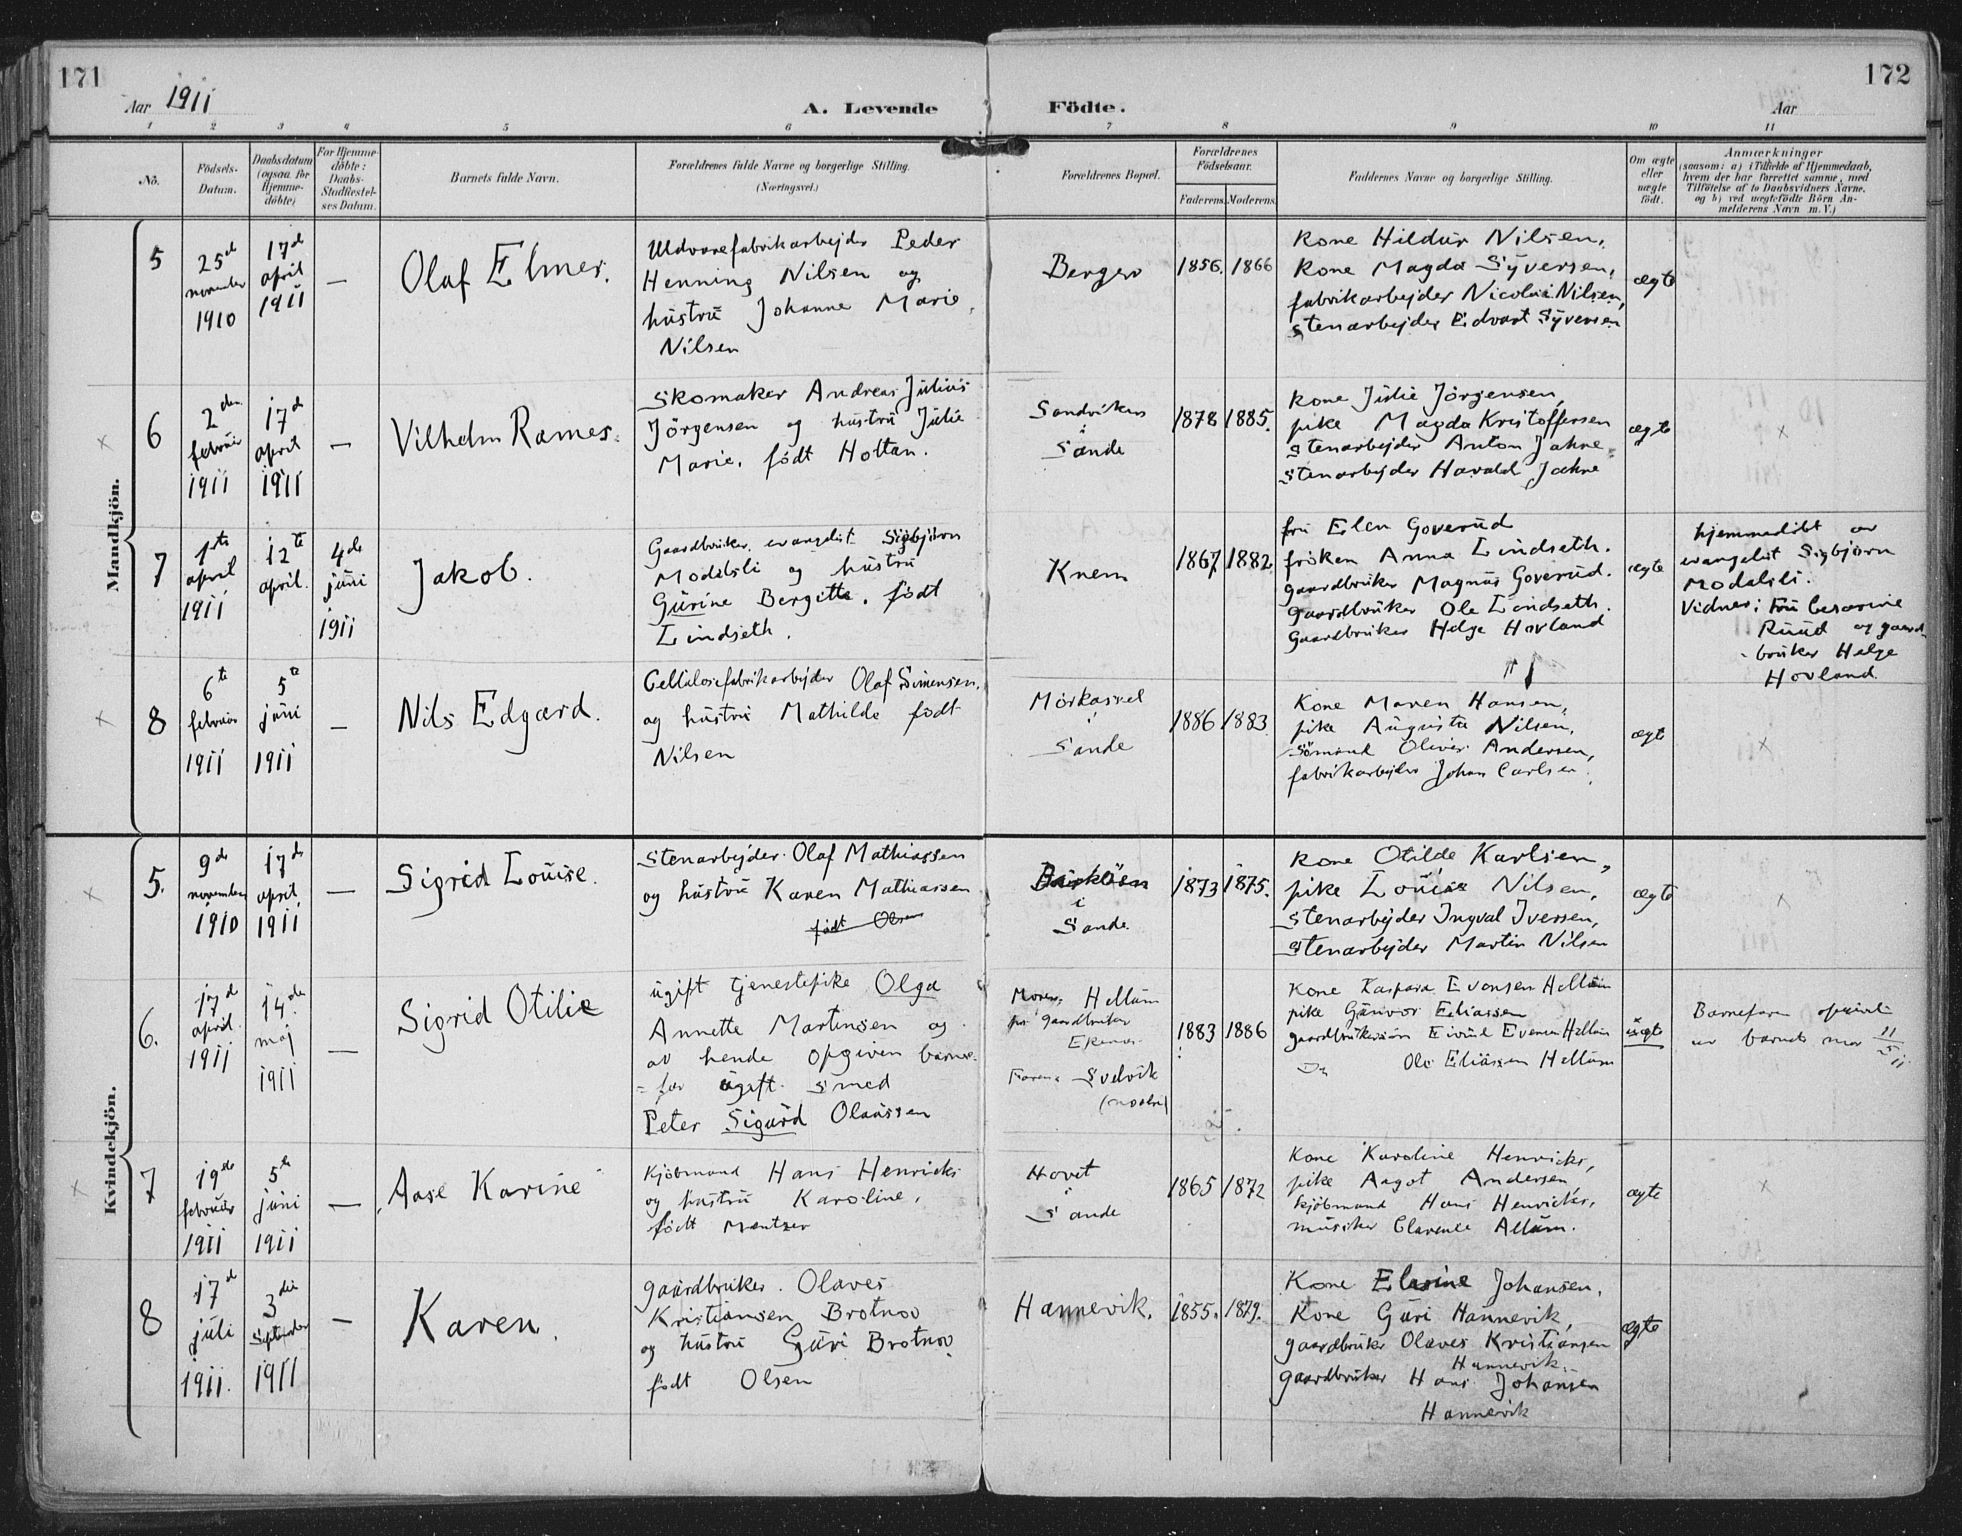 171
Aar 1911
A. Levende
Födte.
Aar
172
1 2 3 4 5 6 7 8 9 10 11
No.
Födsels-
Datum.
Daabsdatum
(ogsaa for
Hjemme-
döbte)
For Hjemme-
döbte:
Daabs-
Stadfæstel-
ses Datum.
Barnets fulde Navn.
Forældrenes fulde Navne og borgerlige Stilling.
(Næringsvei.)
Forældrenes Bopæl.
Forældrenes
Födselsaar.
Faderens. Moderens.
Faddernes Navne og borgerlige Stilling.
Om ægte
eller
uægte
født.
Anmærkninger
(saasom: a) i Tilfælde af Hjemmedaab,
hvem der har forrettet samme, med
Tilföielse af to Daabsvidners Navne,
og b) ved uægtefödte Börn An-
melderens Navn m. V.)
Mandkjön.
5
25de
november
1910
17d
april
1911
—
Olaf Elmer.
Uldvarefabrikarbejder Peder
Henning Nilsen og
hustru Johanne Marie
Nilsen
Berger
1856. 1866
Kone Hildur Nilsen,
Kone Magda Syversen,
fabrikarbejder Nicolai Nilsen,
stenarbejder Edvart Syversen
ægte
6
2den
februar
1911
17d
april
1911
—
Vilhelm Ramer.
Skomaker Andreas Julius
Jörgensen og hustru Julie
Marie, født Holtan.
Sandviken
i
Sande
1878 1885.
Kone Julie Jörgensen,
pike Magda Kristoffersen
stenarbejder Anton Jahre
stenarbejder Harald Jahre
ægte
x
7
1ste
april
1911
12te
april.
4de
juni
1911
Jakob.
Gaardbruker, evangelist Sigbjörn
Modalsli og hustru
Gurine Bergitte, født
Lindseth.
Knem
1867. 1882.
fru Elen Goverud
fröken Anna Lindseth.
gaardbruker Magnus Goverud.
gaardbruker Ole Lindseth.
Gaardbruker Helge Hovland
ægte
hjemmedöbt av
evangelist Sigbjörn
Modalsli.
Vidner: Fru Cesarine
Ruud og gaard-
bruker Helge
Hovland.
8
6te
februar
1911
5te
juni
1911
—
Nils Edgard.
Cellulosefabrikarbejder Olaf Simensen,
og hustru Mathilde født
Nilsen
i
Sande
1886 1883.
Kone Maren Hansen,
pike Augusta Nilsen,
Sömand Oliver Andersen,
fabrikarbejder Johan Carlsen.
ægte
x
Kvindekjön.
5.
9de
november
1910
17de
april
1911
—
Sigrid Louise.
Stenarbejder Olaf Mathiassen
og hustru Karen Mathiassen
født Olsen
i
Sande.
1873 1875.
Kone Otilde Karlsen,
pike Louise Nilsen,
stenarbejder Ingval Iversen,
stenarbejder Martin Nilsen
ægte
x
6.
17d
april
1911
14de
maj
1911
—
Sigrid Otilie
ugift tjenestepike Olga
Annette Martinsen og
av hende opgiven barne-
=far ugift smed
Peter Sigurd Olaussen
Morens Hellum
gaardbruker
Farens Svelvik
1883 1886
Kone Kaspara Evensen Hellum
pike Gunvor Eliassen
gaardbrukersön Eivind Evensen Hellum
Do Ole Eliassen Hellum
uægte
Barnefaren opgivet
av barnets mor 11/5 11
7
19de
februar
1911
5te
juni
1911
—
Aase Karine
Kjöbmand Hans Henricks
og hustru Karoline,
født Mentzer
Hovet
i
Sande
1865 1872
Kone Karoline Henricks,
pike Aagot Andersen,
kjöbmand Hans Henricks,
musiker Clarence Allum.
ægte
x
8
17d
juli
1911.
3die
September
1911
—
Karen.
gaardbruker Olaves
Kristiansen Brotnov
og hustru Guri Brotnov
født Olsen
Hannevik.
1855. 1879.
Kone Elesine Johansen,
Kone Guri Hannevik,
gaardbruker Olaves Kristiansen
Hannevik.
gaardbruker Hans Johansen
Hannevik
ægte